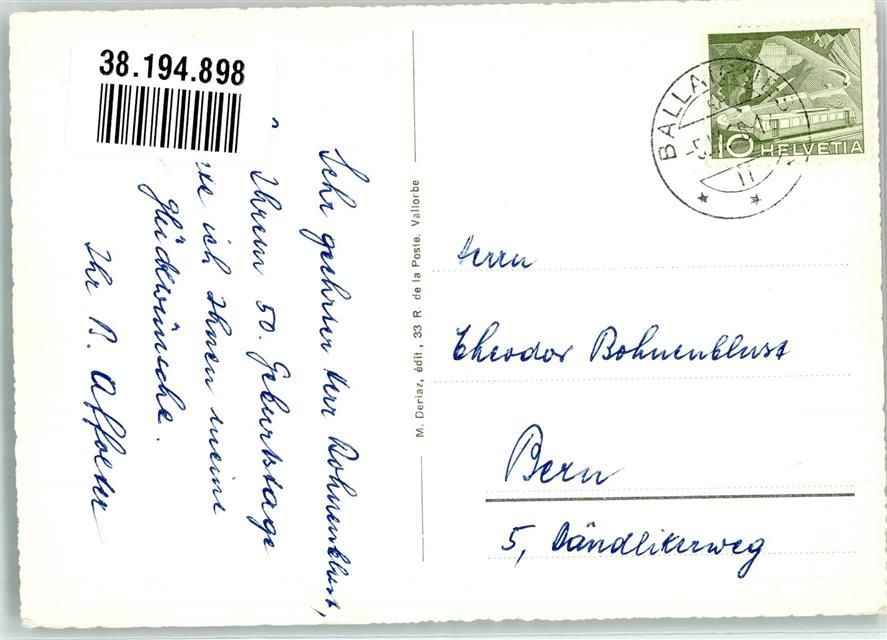 38.194.898
Sehr geehrter Herr Bohnenblust,
Ihrem 50. Geburtstage
ich Ihnen meine
Glückwünsche.
Ihr R. Affolter
M. Deriaz, édit., 33 R. de la Poste, Vallorbe
BALLAIGUES
10 HELVETIA
Herrn
Theodor Bohnenblust
Bern
5, Dändlikerweg